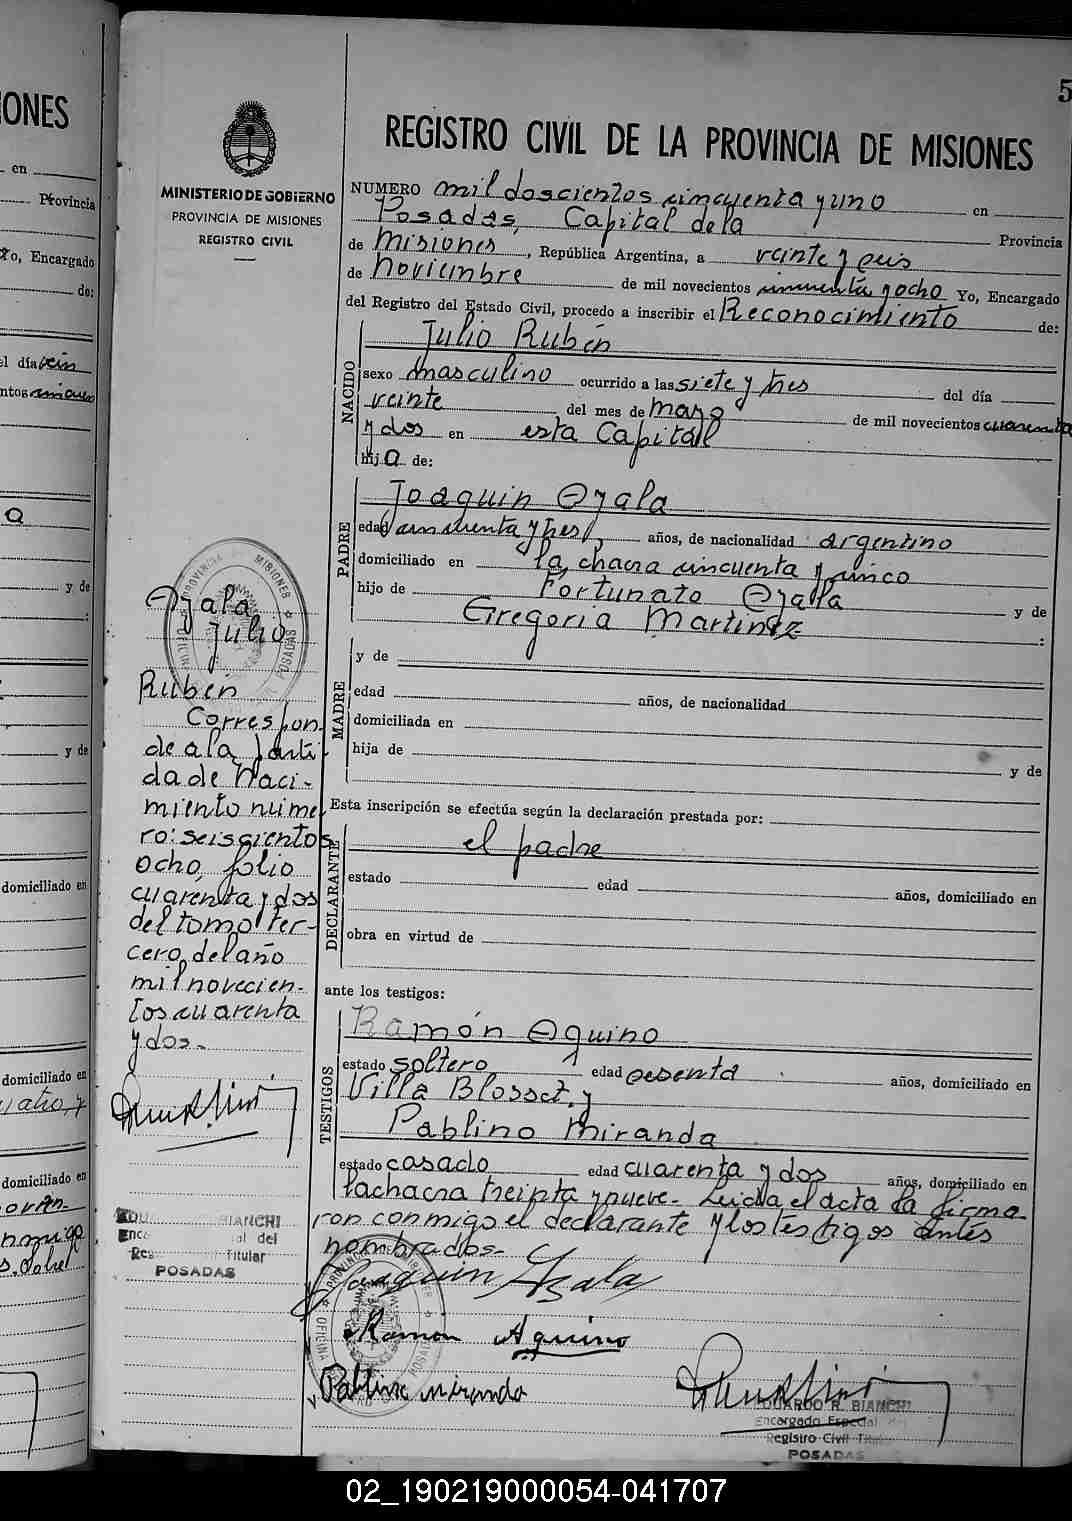 IONES
en
Provincia
ro, Encargado
de:
el día
ntos
a
y de
:
y de
domiciliado en
domiciliado en
domiciliado en
5
MINISTERIO DE GOBIERNO
PROVINCIA DE MISIONES
REGISTRO CIVIL
REGISTRO CIVIL DE LA PROVINCIA DE MISIONES
NUMERO mil doscientos cincuenta y uno en
Posadas, Capital de la Provincia
de Misiones, República Argentina, a veinte y seis
de noviembre de mil novecientos cincuenta y ocho Yo, Encargado
del Registro del Estado Civil, procedo a inscribir el Reconocimiento de:
NACIDO
Julio Rubén
sexo masculino ocurrido a las siete y tres del día
veinte del mes de mayo de mil novecientos cuarenta
y dos en esta Capital
hijo de:
PADRE
Joaquin Ayala
edad cincuenta y tres, años, de nacionalidad argentino
domiciliado en la chacra cincuenta y cinco
hijo de Fortunato Ayala y de
Gregoria Martinez :
MADRE
y de
edad años, de nacionalidad
domiciliada en
hija de
y de
Esta inscripción se efectúa según la declaración prestada por:
DECLARANTE
el padre
estado edad años, domiciliado en
obra en virtud de
ante los testigos:
TESTIGOS
Ramón Aquino
estado soltero edad sesenta años, domiciliado en
Villa Blosset, y
Pablino Miranda
estado casado edad cuarenta y dos años, domiciliado en
la chacra treinta y nueve- Leida el acta la firma
ron conmigo el declarante y los testigos antes
nombrados-
Joaquin Ayala
Ramon Aquino
Pablino Miranda
EDUARDO R. BIANCHI
Encargado Especial del
Registro Civil Titular
POSADAS
Ayala
Julio
Rubén
Correspon-
de a la parti-
da de naci-
miento nume
ro: seiscientos
ocho, folio
cuarenta y dos
del tomo ter-
cero, del año
mil novecien-
tos cuarenta
y dos.-
BIANCHI
al del
Titular
POSADAS
PROVINCIA DE MISIONES
POSADAS
02_190219000054-041707